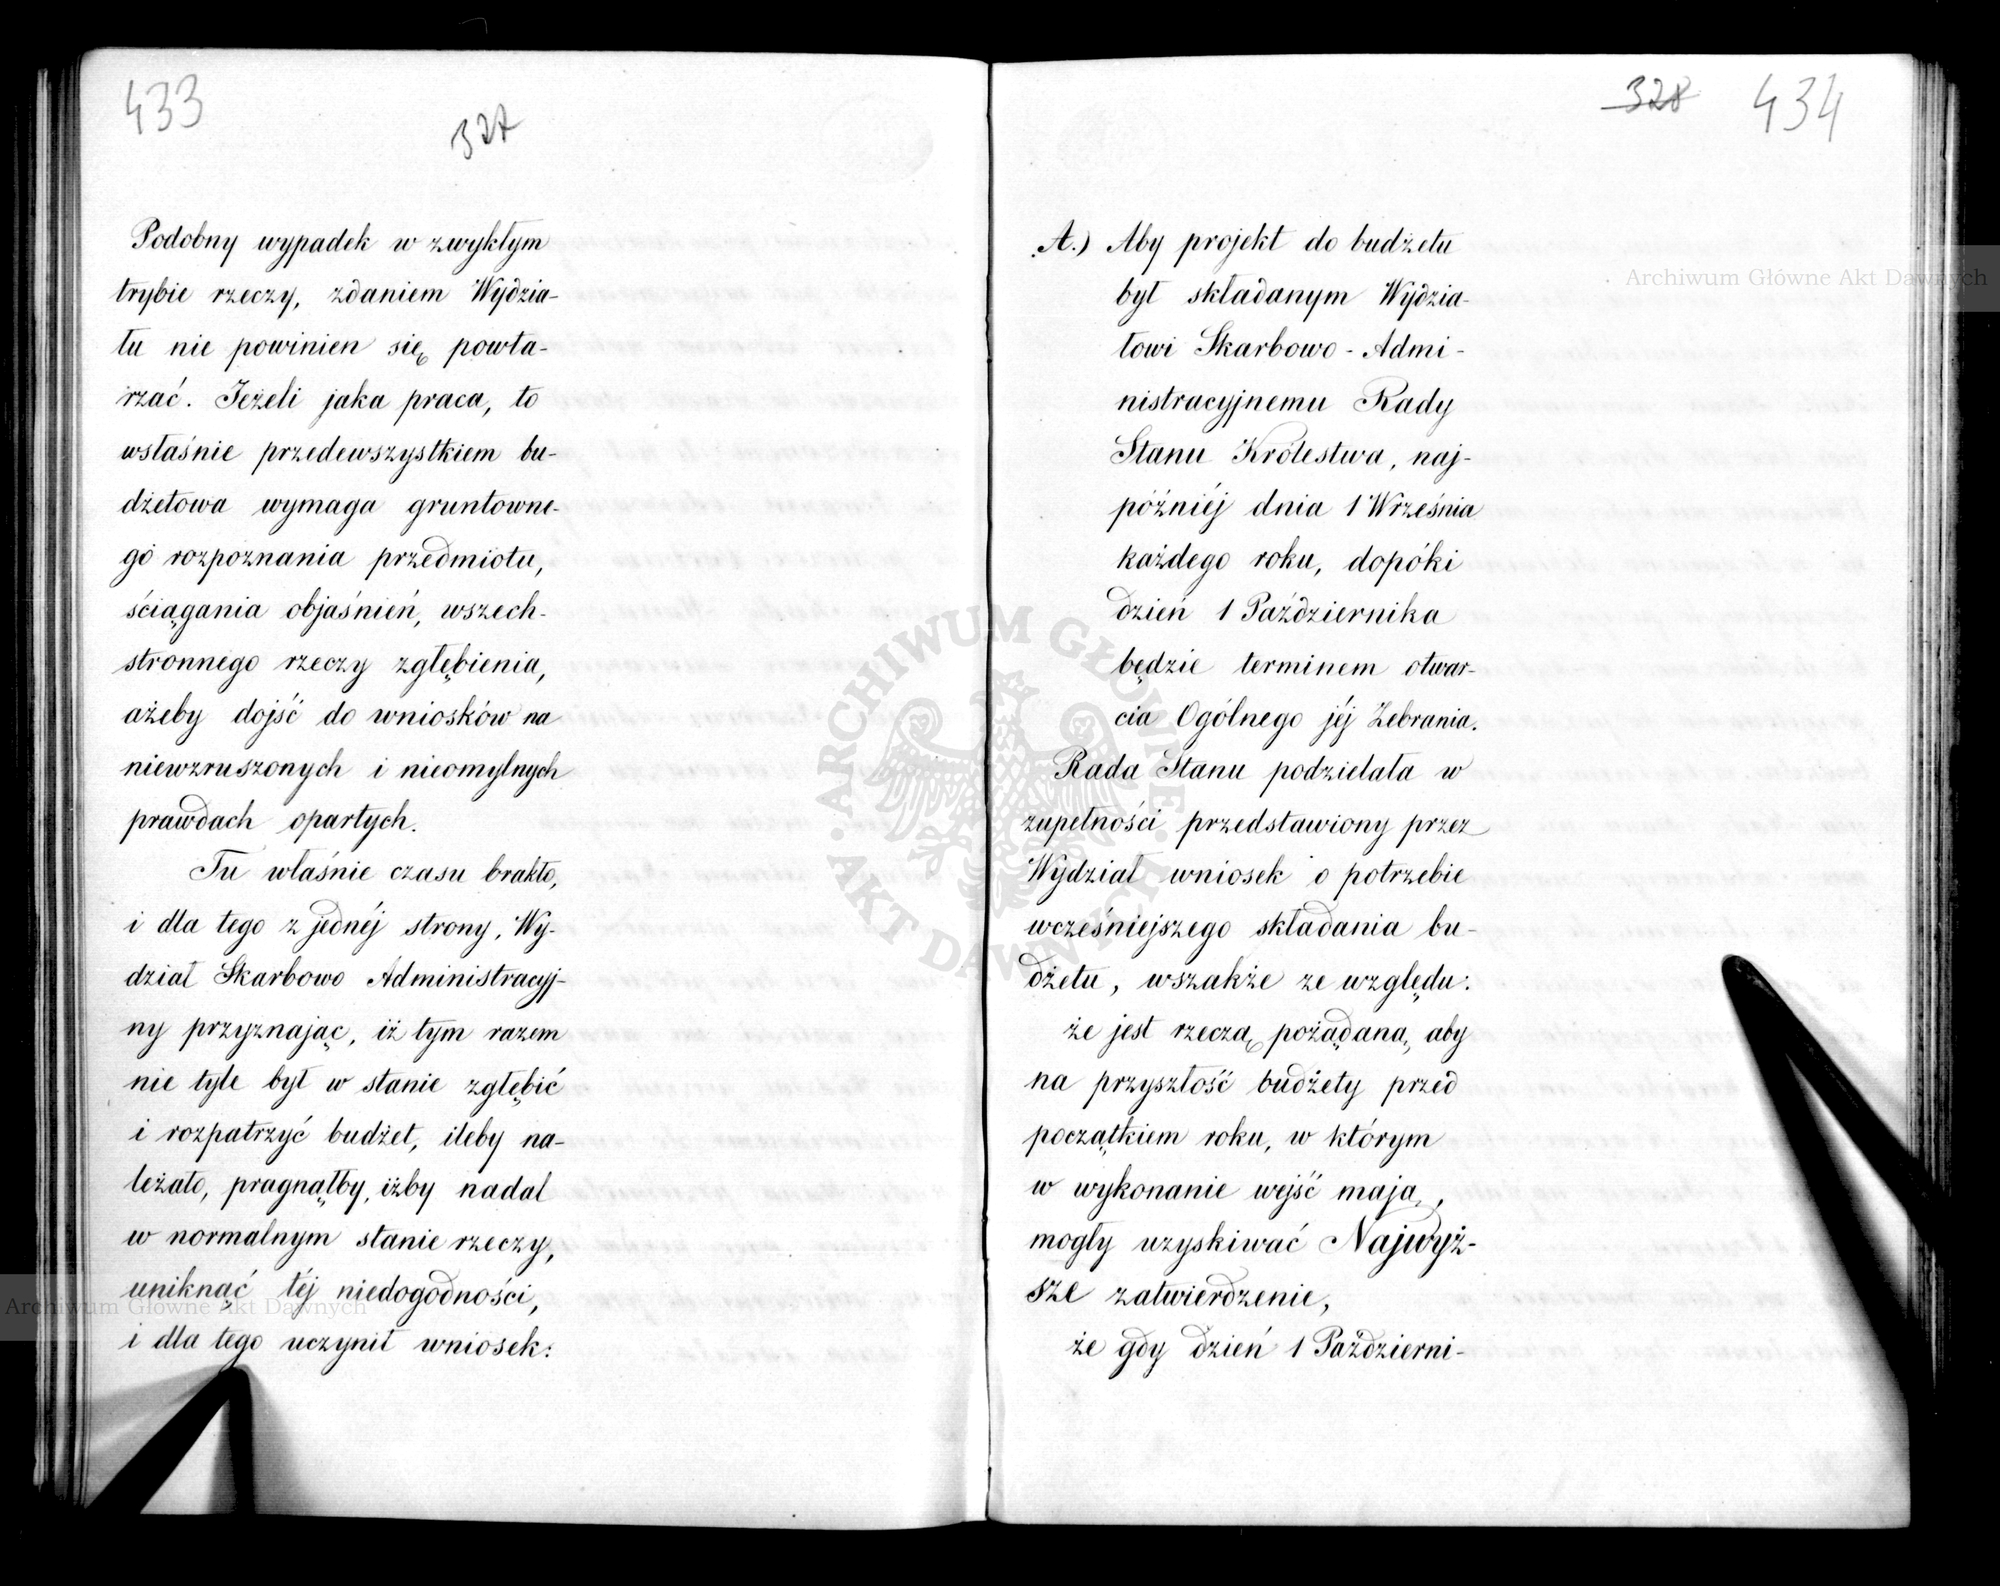 433
327
Podobny wypadek w zwykłym
trybie rzeczy, zdaniem Wydzia-
łu nie powinien się powta-
rzać. Jeżeli jaka praca, to
właśnie przedewszystkiem bu-
dżetowa wymaga gruntowne-
go rozpoznania przedmiotu,
ściągania objaśnień, wszech-
stronnego rzeczy zgłębienia,
ażeby dojść do wniosków na
niewzruszonych i nieomylnych
prawdach opartych.
Tu właśnie czasu brakło,
i dla tego z jednéj strony, Wy-
dział Skarbowo Administracyj-
ny przyznając, iż tym razem
nie tyle był w stanie zgłębić
i rozpatrzyć budżet, ileby na-
leżało, pragnąłby, iżby nadal
w normalnym stanie rzeczy,
uniknąć téj niedogodności,
i dla tego uczynił wniosek:
328 434
A.) Aby projekt do budżetu
był składanym Wydzia-
łowi Skarbowo-Admi-
nistracyjnemu Rady
Stanu Królestwa, naj-
późniéj dnia 1 Września
każdego roku, dopóki
dzień 1 Października
będzie terminem otwar-
cia Ogólnego jéj Zebrania.
Rada Stanu podzielała w
zupełności przedstawiony przez
Wydział wniosek o potrzebie
wcześniejszego składania bu-
dżetu, wszakże ze względu:
że jest rzeczą pożądaną, aby
na przyszłość budżety przed
początkiem roku, w którym
w wykonanie wejść mają,
mogły uzyskiwać Najwyż-
sze zatwierdzenie,
że gdy dzień 1 Październi-
Archiwum Główne Akt Dawnych
Archiwum Główne Akt Dawnych
ARCHIWUM GŁÓWNE · AKT DAWNYCH ·